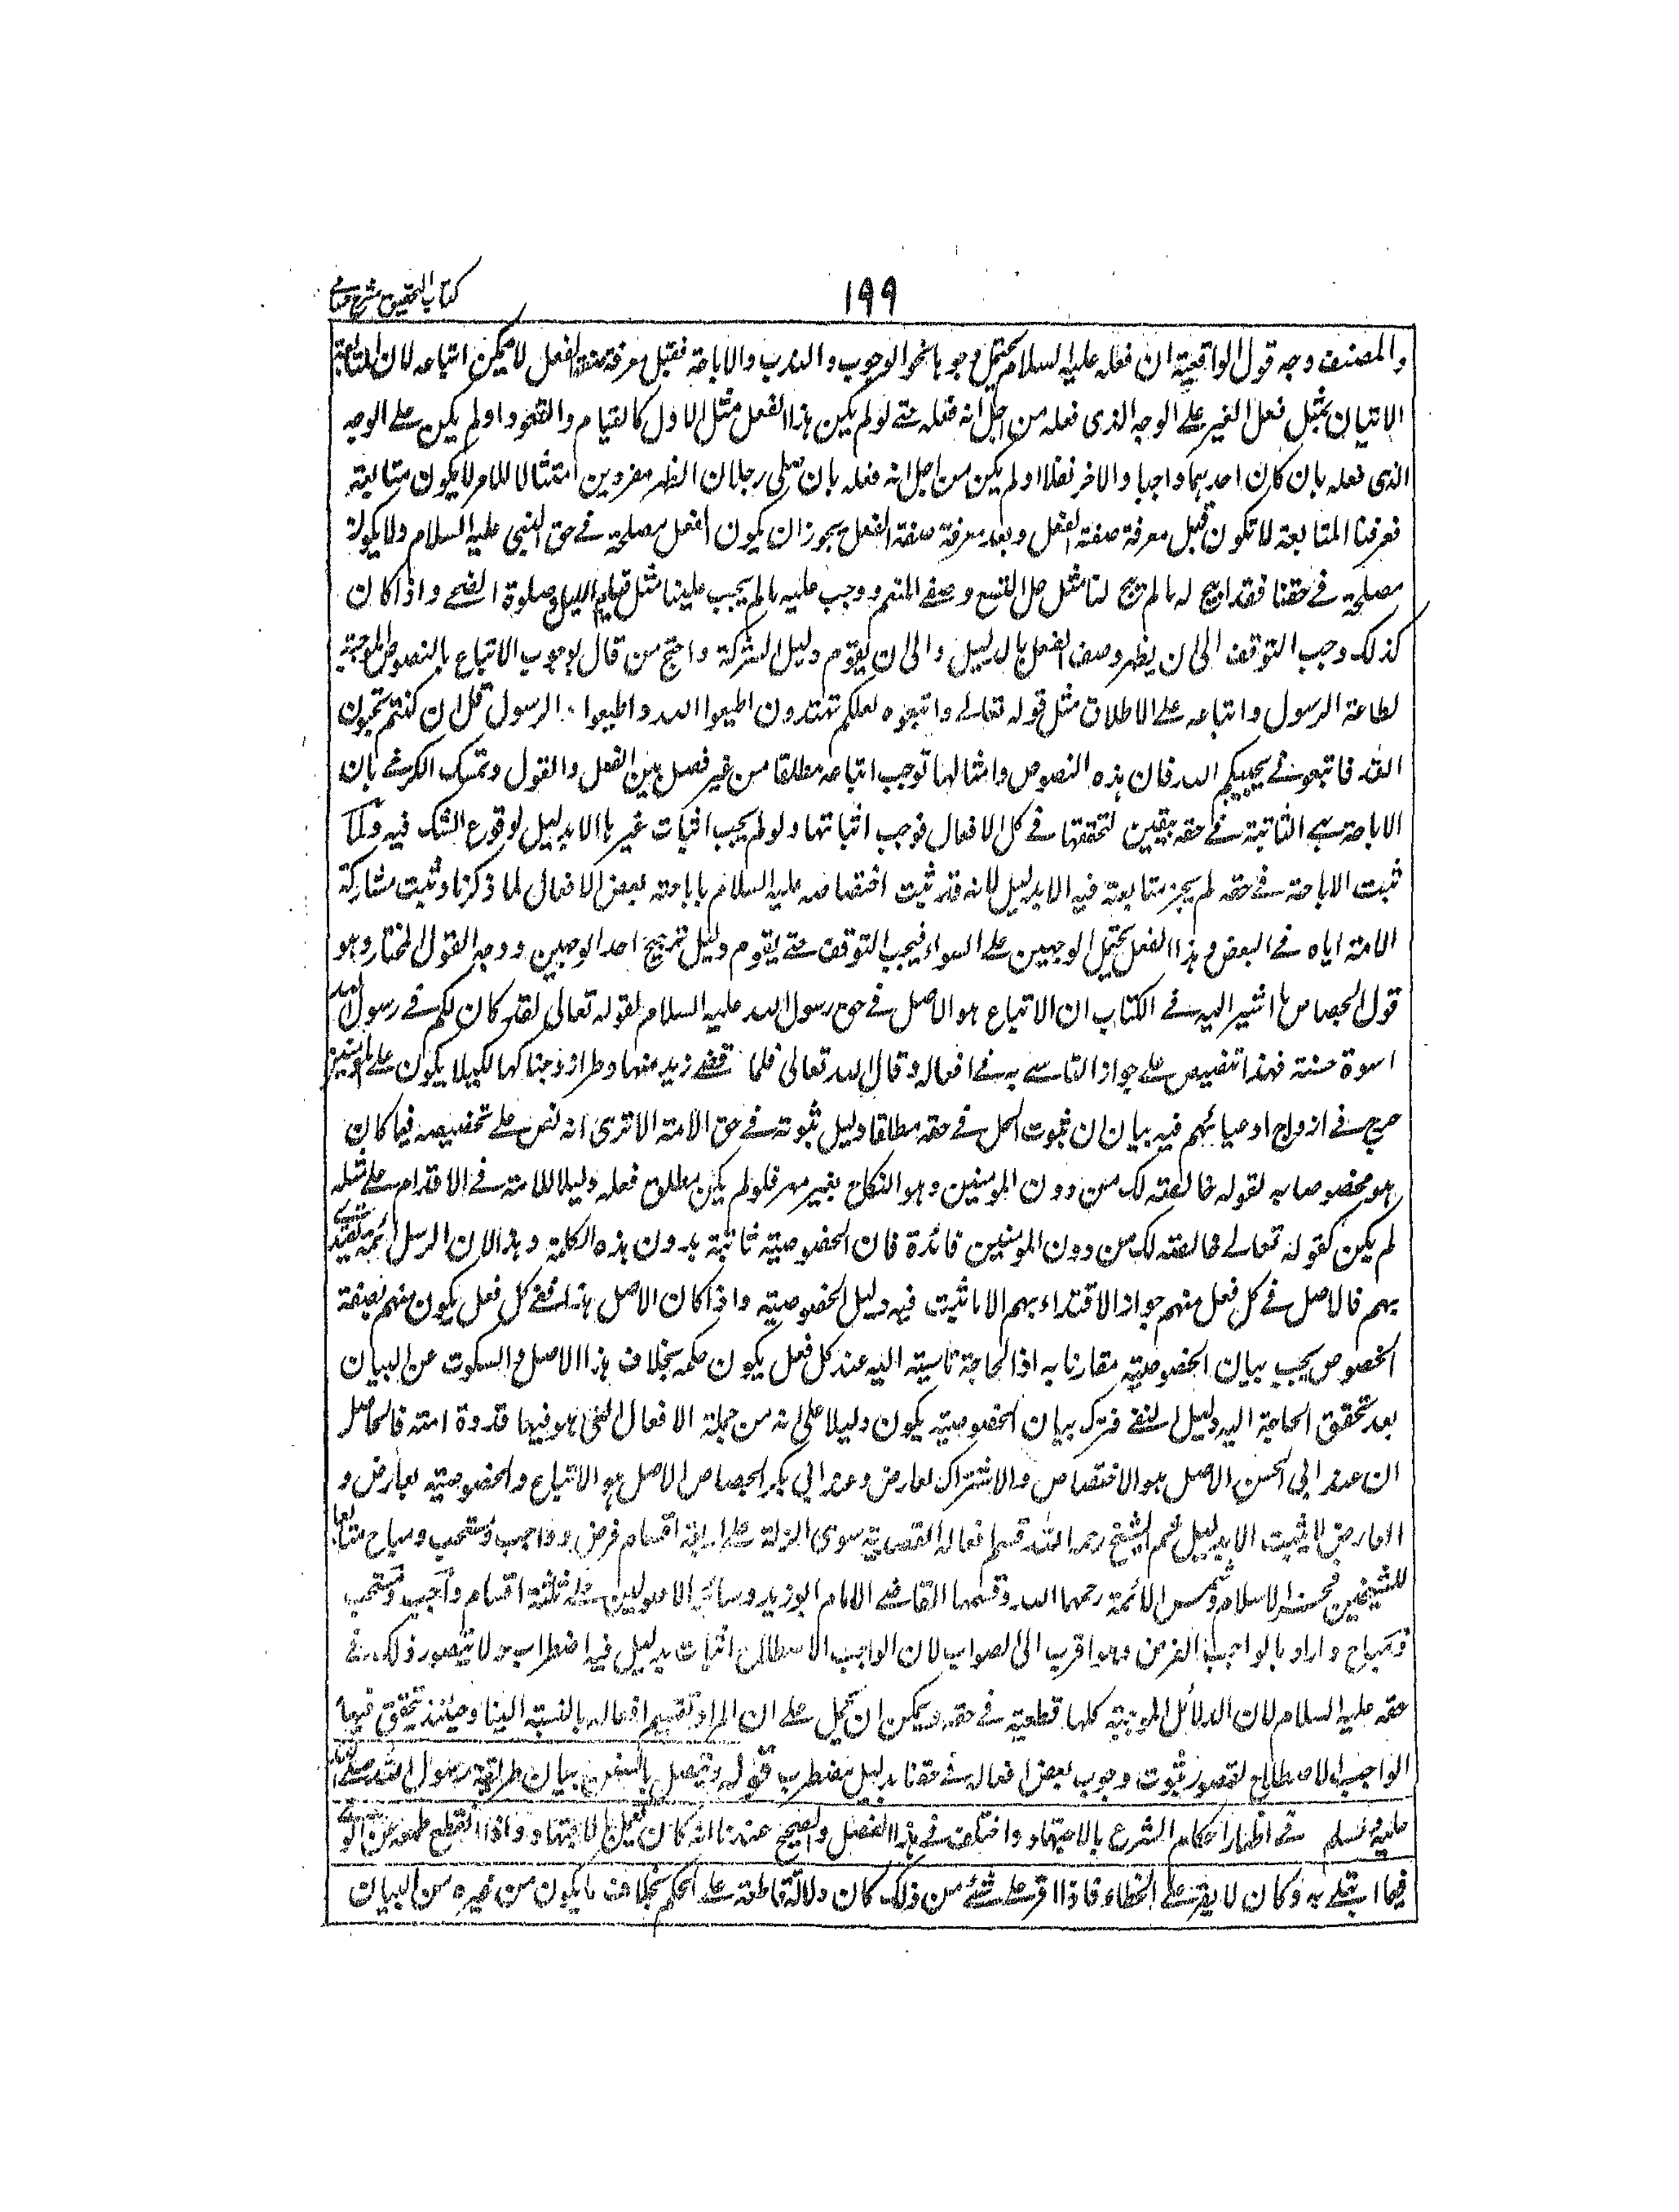 كتاب التحقيق شرح حسامي
١٩٩
والمصنف وجه قول الواقفية ان فعله عليه السلام يحتمل وجوها نحو الوجوب والندب والاباحة فقبل معرفة صفة الفعل لا يمكن اتباعه لان المتابعة
الاتيان بمثل فعل الغير على الوجه الذى فعله من اجل انه فعله حتى لو لم يكن هذا الفعل مثل الاول كالقيام والقعود او لم يكن على الوجه
الذى فعله بان كان احدهما واجبا والاخر نفلا او لم يكن من اجل انه فعله بان صلى رجلان الظهر مفردين امتثالا للامر لا يكون متابعة
فعرفنا المتابعة لا تكون قبل معرفة صفة الفعل وبعد معرفة صفة الفعل يجوز ان يكون الفعل مصلحة في حق النبي عليه السلام ولا يكون
مصلحة في حقنا فقد ابيح له ما لم يبح لنا مثل حل التسع وصفى المغنم ووجب عليه ما لم يجب علينا مثل قيام الليل وصلوة الضحى واذا كان
كذلك وجب التوقف الى ان يظهر وصف الفعل بالدليل والى ان يقوم دليل الشركة واحتج من قال بوجوب الاتباع بالنصوص الموجبة
لطاعة الرسول واتباعه على الاطلاق مثل قوله تعالى واتبعوه لعلكم تهتدون اطيعوا الله واطيعوا الرسول قل ان كنتم تحبون
الله فاتبعوني يحببكم الله فان هذه النصوص وامثالها توجب اتباعه مطلقا من غير فصل بين الفعل والقول وتمسك الكرخي بان
الاباحة هي الثابتة في حقه بيقين لتحققها في كل الافعال فوجب اثباتها ولو لم يجب اثبات غيرها الا بدليل لوقوع الشك فيه ولما
ثبت الاباحة في حقه لم يجز متابعة فيه الا بدليل لانه قد ثبت اختصاصه عليه السلام باباحة بعض الافعال لما ذكرنا وثبت مشاركة
الامة اياه في البعض وهذا الفعل يحتمل الوجهين على السواء فيجب التوقف حتى يقوم دليل ترجيح احد الوجهين ووجه القول المختار وهو
قول الجصاص ما اشير اليه في الكتاب ان الاتباع هو الاصل في حق رسول الله عليه السلام لقوله تعالى لقد كان لكم في رسول الله
اسوة حسنة فهذا تنصيص على جواز التاسي به في افعاله وقال الله تعالى فلما قضى زيد منها وطرا زوجناكها لكيلا يكون على المؤمنين
حرج في ازواج ادعيائهم فيه بيان ان ثبوت الحل في حقه مطلقا دليل ثبوته في حق الامة الا ترى انه نص على تخصيصه فيما كان
هو مخصوصا به لقوله خالصة لك من دون المؤمنين وهو النكاح بغير مهر فلو لم يكن مطلق فعله دليلا للامة في الاقدام على مثله
لم يكن لقوله تعالى خالصة لك من دون المؤمنين فائدة فان الخصوصية ثابتة بدون هذه الكلمة وهذا لان الرسل ائمة يقتدى
بهم فالاصل في كل فعل منهم جواز الاقتداء بهم الا ما ثبت فيه دليل الخصوصية واذا كان الاصل هذا ففي كل فعل يكون منهم بصفة
الخصوص يجب بيان الخصوصية مقارنا به اذ الحاجة ماسة اليه عند كل فعل يكون حكمه بخلاف هذا الاصل والسكوت عن البيان
بعد تحقق الحاجة اليه دليل النفي فترك بيان الخصوصية يكون دليلا على انه من جملة الافعال التي هو فيها قدوة امته فالحاصل
ان عند ابي الحسن الاصل هو الاختصاص والاشتراك بعارض وعند ابي بكر الجصاص الاصل هو الاتباع والخصوصية بعارض و
العارض لا يثبت الا بدليل ثم الشيخ رحمه الله قسم افعاله القصدية سوى الزلة على اربعة اقسام فرض وواجب ومستحب ومباح متابعا
للشيخين فخر الاسلام وشمس الائمة رحمهما الله وقسمها القاضي الامام ابو زيد وسائر الاصوليين على ثلثة اقسام واجب ومستحب
ومباح واراد بالواجب الفرض وهو اقرب الى الصواب لان الواجب الاصطلاحي اثبات بدليل فيه اضطراب ولا يتصور ذلك في
حقه عليه السلام لان الدلائل الموجبة كلها قطعية في حقه ويمكن ان يحمل على ان المراد تقسيم افعاله بالنسبة الينا وحينئذ يتحقق فيها
الواجب الاصطلاحي لتصور ثبوت وجوب بعض افعاله في حقنا بدليل مضطرب قوله ويتصل بالسنن بيان طريقة رسول الله صلى الله
عليه وسلم في اظهار احكام الشرع بالاجتهاد واختلف في هذا الفصل والصحيح عندنا انه كان يعمل بالاجتهاد واذا انقطع طمعه عن الوحي
فيما ابتلى به وكان لا يقر على الخطاء فاذا اقر على شئ من ذلك كان دلالة قاطعة على الحكم بخلاف ما يكون من غيره من البيان